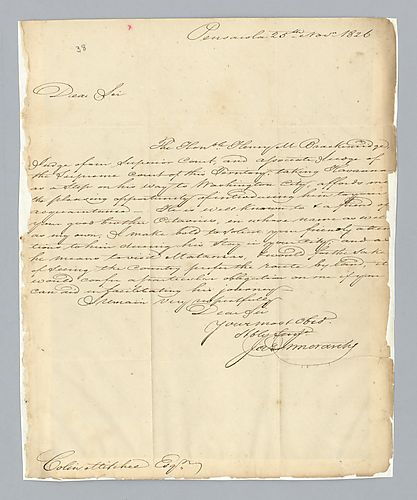 38
Pensacola 25th Novr 1826
Dear Sir
The Honble Henry M Brackenridge
Judge of our Superior Court, and associate Judge of
the Supreme Court of this Territory, taking Havanna
as a step on his way to Washington City, affords me
the pleasing opportunity of introducing him to your
acquaintance. He is well known to a friend of
yours both Octavius, in whose name as well
as my own, I make bold to solicit your friendly atten
tions to him during his stay in your City, and as
he means to visit Matanzas, & would for the sake
of seeing the Country prefer the route by land, it
would confer a particular obligation on me if you
can aid in facilitating his journey
I remain very respectfully
Dear Sir
Your most Obt
Hble Servt
Jas
Colin Mitchel Esqr